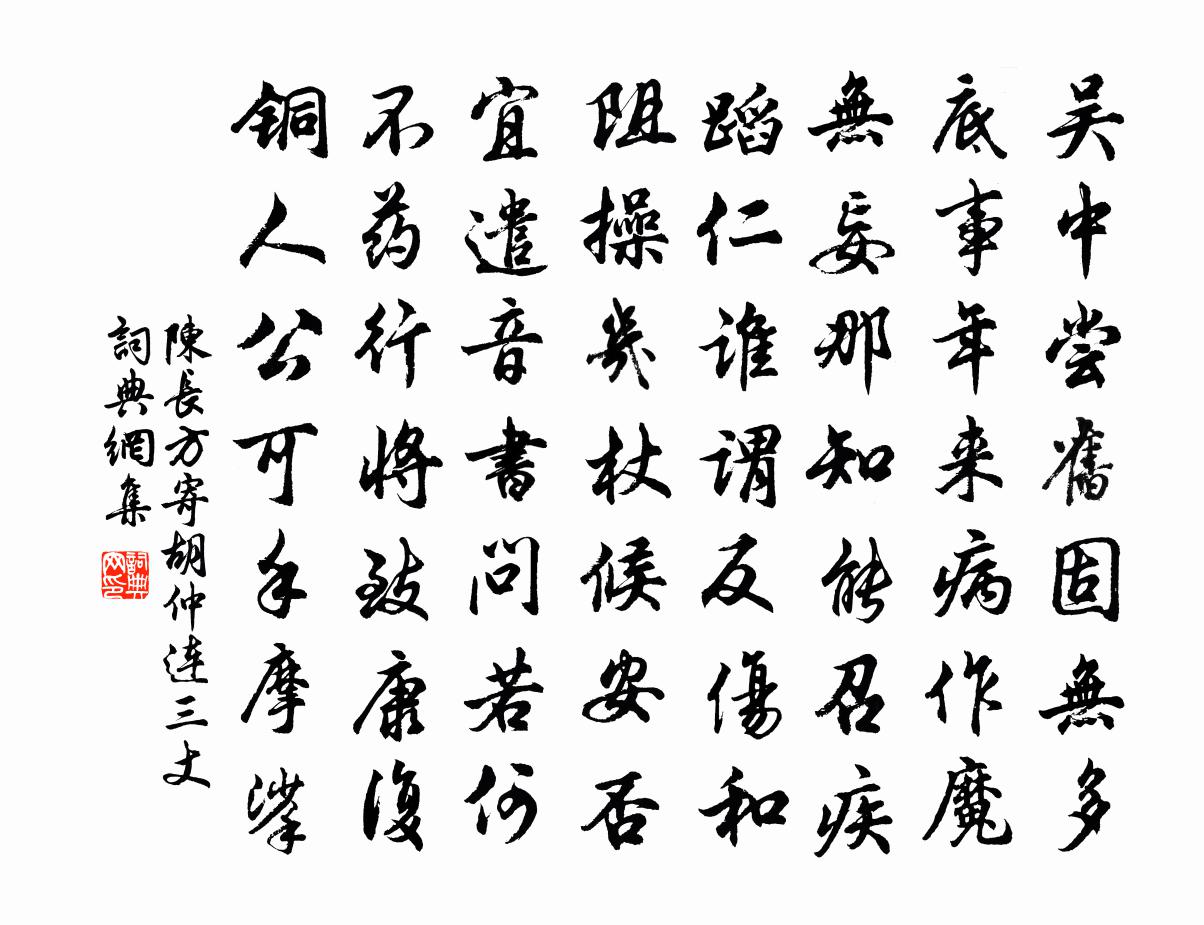 吴中尝舊固無多
底事年来病作魔
無妄那知能召疾
蹈仁谁謂反傷和
阻操几杖候安否
宜遣音書問若何
不药行將致康復
铜人公可手摩挲
陳長方寄胡仲連三丈
詞典網集
詞典网印